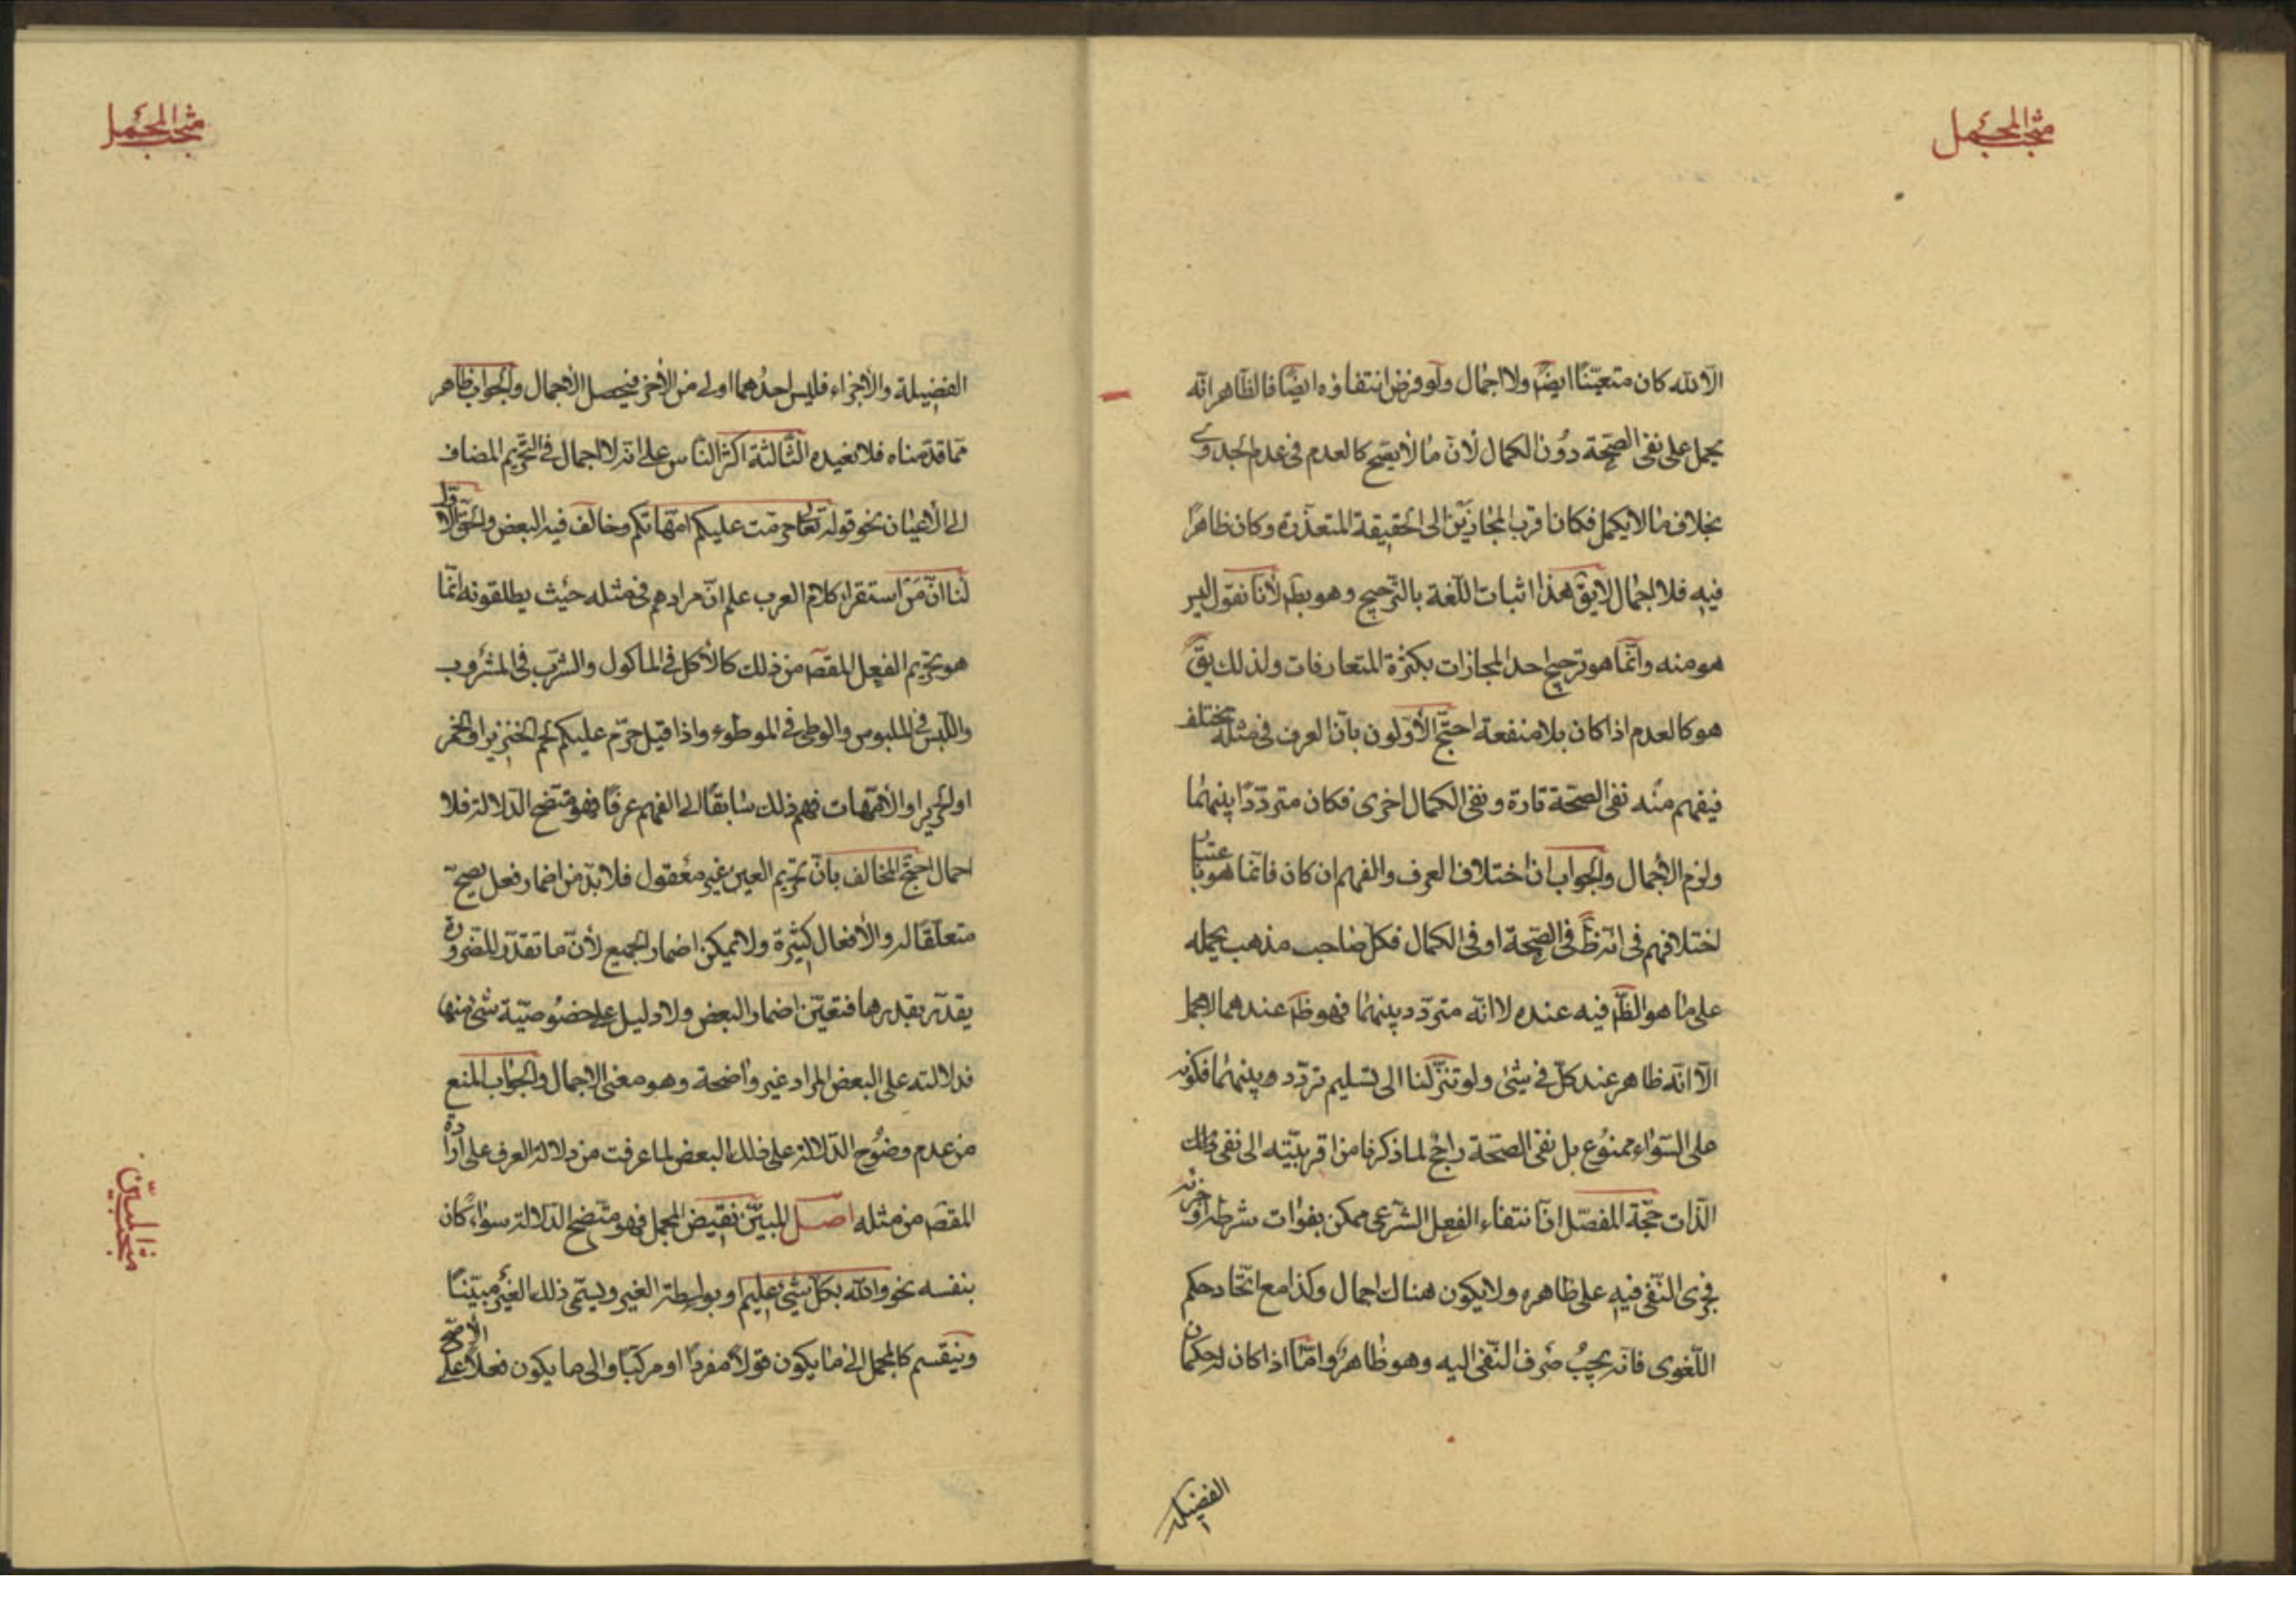 مبحث المجمل
الا لله كان متعيّنًا ايضًا ولا اجمال ولو فرض انتفاؤه ايضًا فالظاهر انّه
يحمل على نفى الصحّة دون الكمال لأنّ ما لا يصح كالعدم فى عدم الجدوى
بخلاف ما لا يكمل فكان اقرب المجازين الى الحقيقة المتعذرة وكان ظاهرًا
فيه فلا اجمال لا يق هذا اثبات اللّغة بالترجيح وهو بط لأنا نقول ليس
هو منه وانّما هو ترجيح احد المجازات بكثرة المتعارفات ولذلك يق
هو كالعدم اذا كان بلا منفعة احتجّ الأوّلون بانّ العرف فى مثله مختلف
فيفهم منه نفى الصحّة تارة و نفى الكمال اخرى فكان متردّدًا بينهما
ولزم الاجمال والجواب ان اختلاف العرف والفهم ان كان فانّما هو باعتبار
اختلافهم فى انه ظ فى الصحّة او فى الكمال فكلّ صاحب مذهب يحمله
على ما هو الظ فيه عنده لا انّه متردّد بينهما فهو ظ عندهما لا مجمل
الّا انّه ظاهر عند كلّ فى شئ ولو تنزّلنا الى تسليم تردّده بينهما فكونه
على السّواء ممنوع بل نفى الصحّة راجح لما ذكرنا من اقربيّته الى نفى
الذّات حجّة المفصّل انّ انتفاء الفعل الشرعى ممكن بفوات شرطه او جزئه
فجرى النّفى فيه على ظاهره ولا يكون هناك اجمال وكذا مع اتّحاد حكم
اللّغوى فانّه يجب صرف النّفى اليه وهو ظاهر وامّا اذا كان له حكمان
الفضيلة
مبحث المجمل
الفضيلة والاجزاء فليس احدهما اولى من الأخر فيحصل الاجمال والجواب ظاهر
ممّا قدّمناه فلا نعيده الثّالثة اكثر النّاس على انّه لا اجمال فى التّحريم المضاف
الى الأعيان نحو قوله تعالى حرّمت عليكم امّهاتكم وخالف فيه البعض والحق الأوّل
لنا انّ من استقراء كلام العرب علم انّ مرادهم فى مثله حيث يطلقونه انّما
هو تحريم الفعل المقصـ من ذلك كالأكل فى المأكول والشرب فى المشروب
واللّبس فى الملبوس والوطى فى الموطوء واذا قيل حرّم عليكم لحم الخنزير او الخمر
او الحرير او الأمّهات فهم ذلك سابقًا الى الفهم عرفًا فهو متّضح الدّلالة فلا
اجمال احتجّ المخالف بانّ تحريم العين غير معقول فلا بدّ من اضمار فعل يصحّ
متعلّقًا له والأفعال كثيرة ولا يمكن اضمار الجميع لأنّ ما تقدّر للضّرورة
يقدّر بقدرها فتعيّن اضمار البعض ولا دليل على خصوصيّة شئ منها
فدلالته على البعض المراد غير واضحة وهو معنى الاجمال والجواب المنع
من عدم وضوح الدّلالة على ذلك البعض لما عرفت من دلالة العرف على ارادة
المقصـ من مثله اصل المبيّن نقيض المجمل فهو متّضح الدّلالة سواء كان
بنفسه نحو والله بكلّ شئ عليم او بواسطة الغير ويسمّى ذلك الغير مبيّنًا
وينقسم كالمجمل الى ما يكون قولًا مفردًا او مركّبًا والى ما يكون فعلًا على الأصحّ
مبحث المبيّن